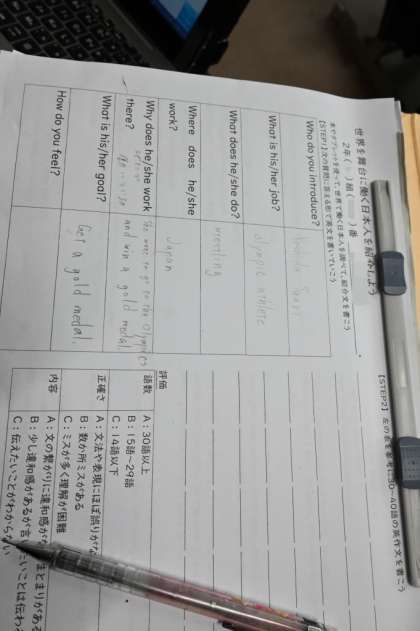 世界を舞台に働く日本人を紹介しよう
2年( )組( )番
【STEP1】文の質問に答える形で英文を書いていこう
Who do you introduce?
What is his/her job?
Olympic athlete
What does he/she do?
wrestling
Where does he/she work?
Japan
Why does he/she work there?
to go to the Olympics
and win a gold medal
What is his/her goal?
Get a gold medal.
How do you feel?
【STEP2】左の表を参考に30~40語の英作文を書こう
評価
語数
A:30語以上
B:15語~29語
C:14語以下
正確さ
A:文法や表現にほぼ誤りがな
B:数か所ミスがある
C:ミスが多く理解が困難
内容
A:文の繋がりに違和感が
まとまりがある
B:少し違和感があるが言
たいことは伝わ
C:伝えたいことがわからない